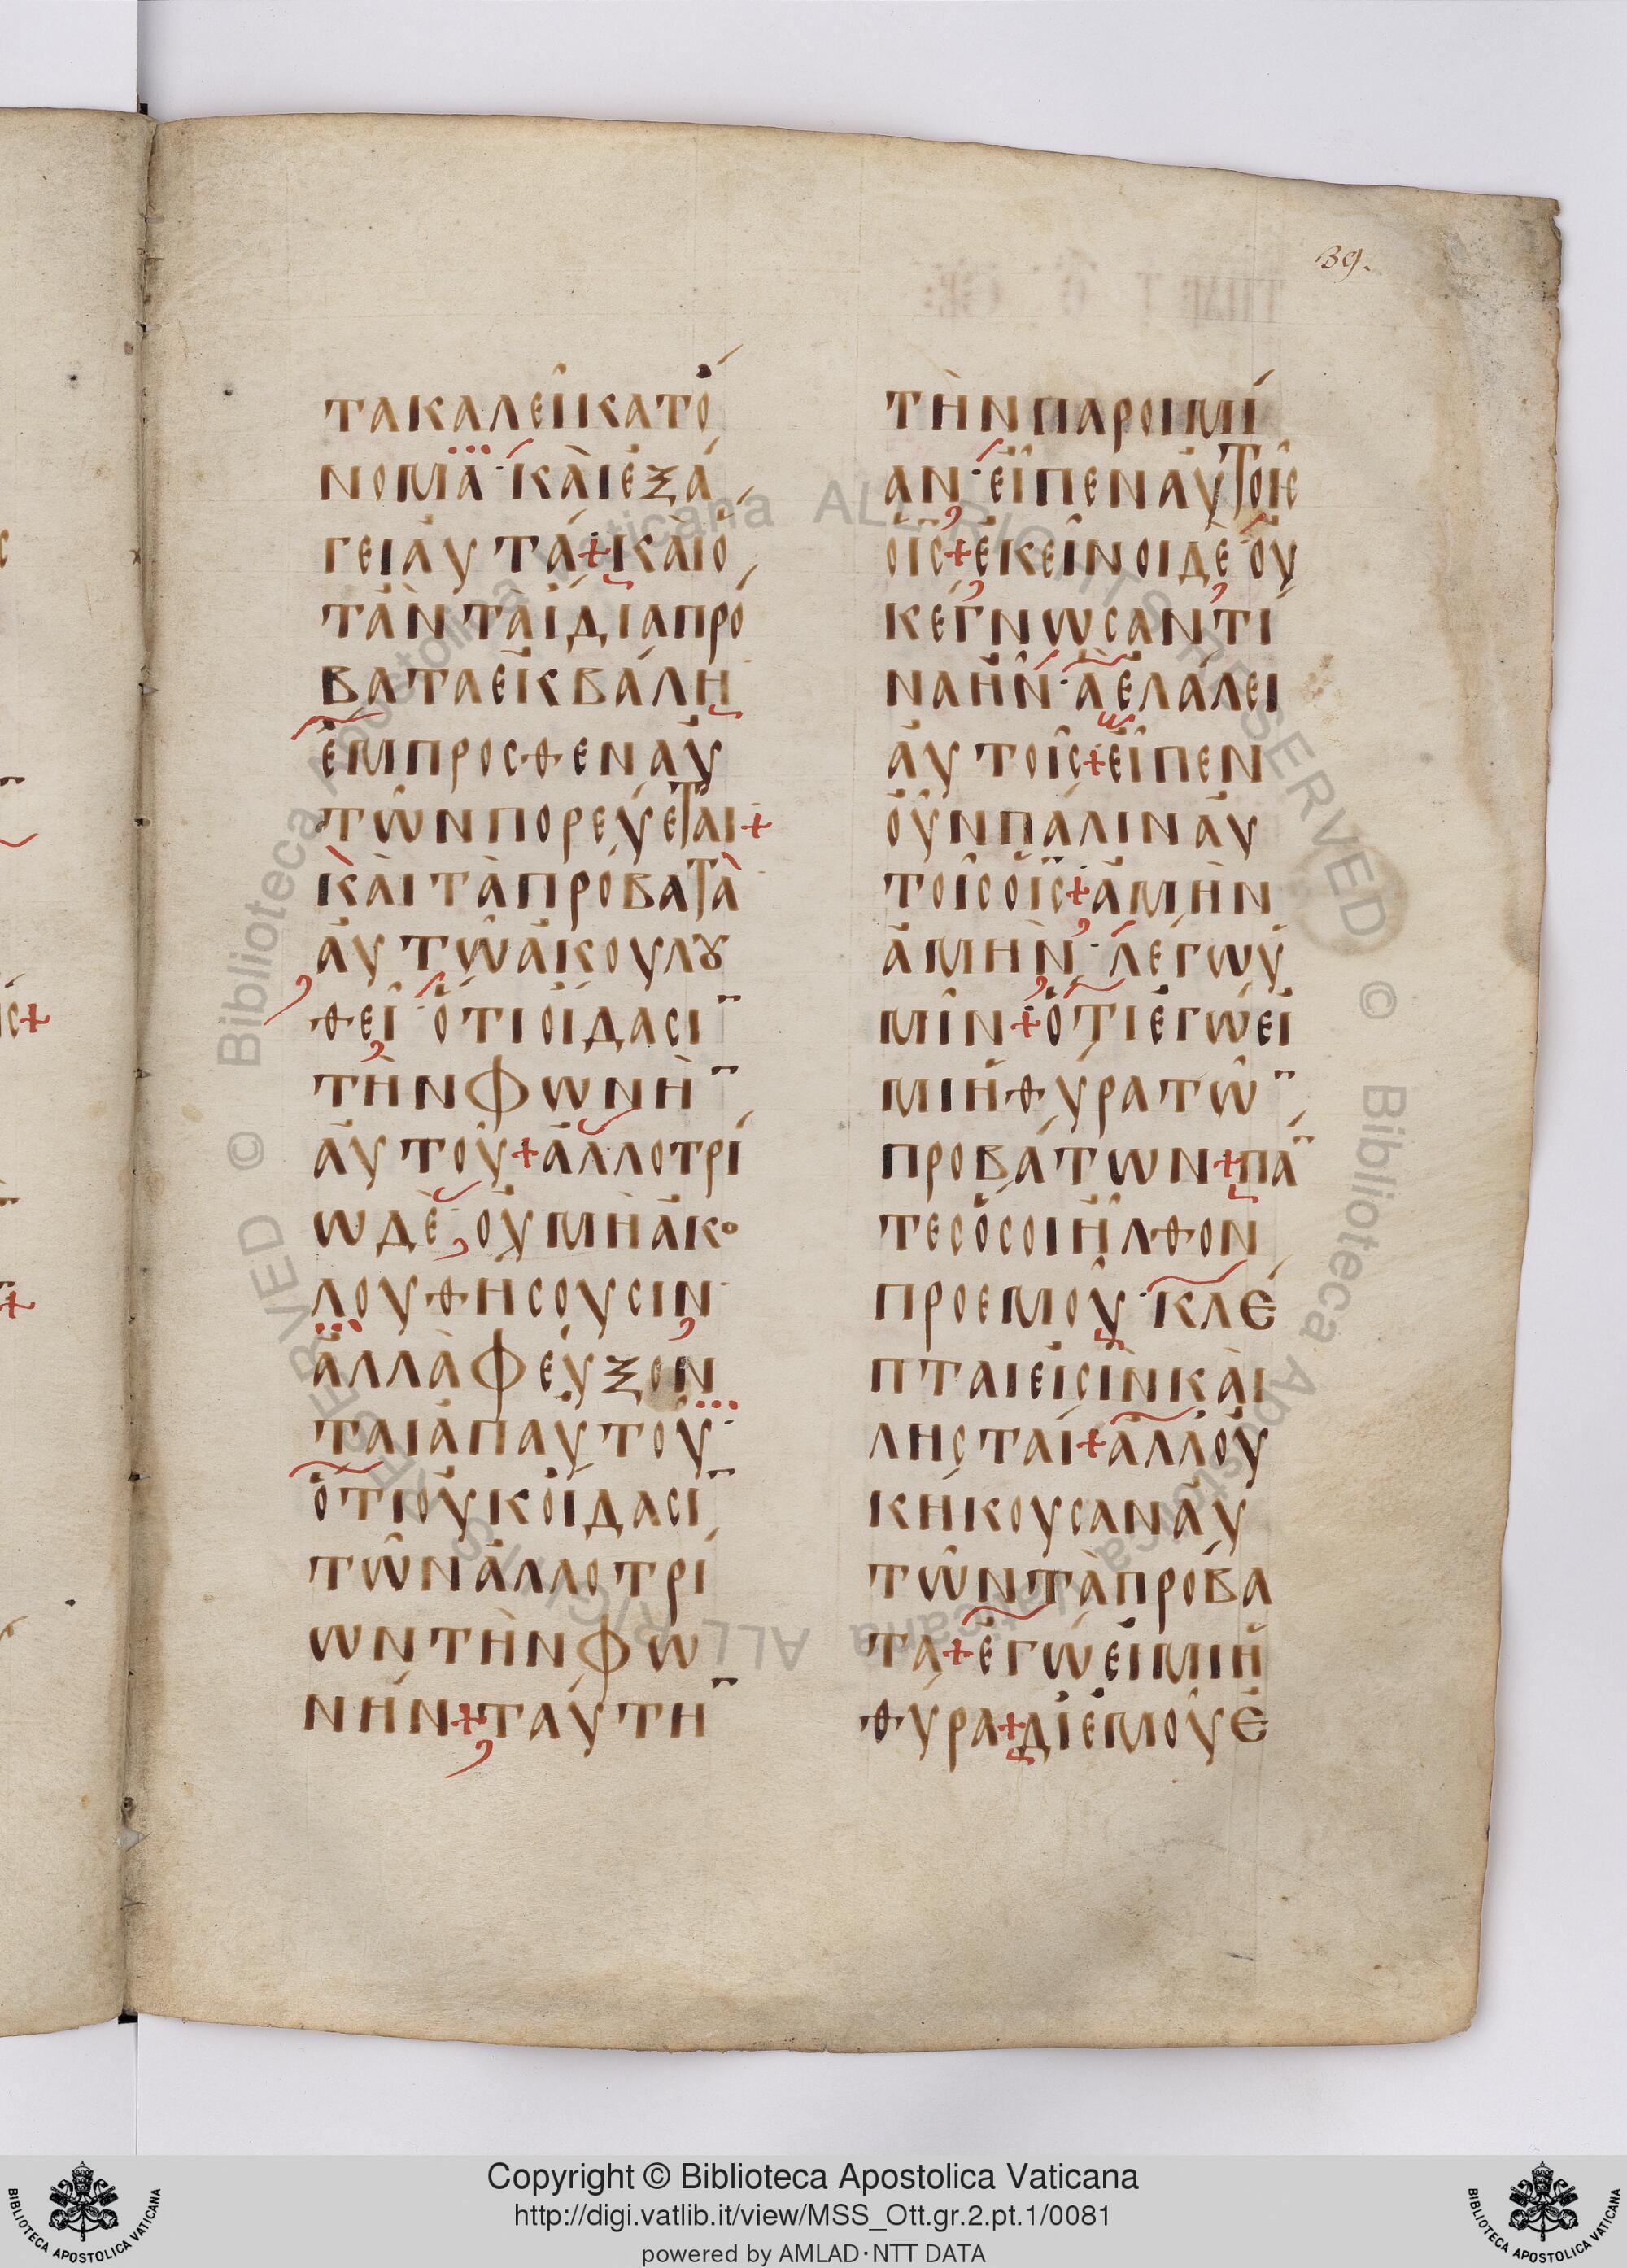 39.
ΤΑΚΑΛΕΙΚΑΤΟ
ΝΟΜΑ·ΚΑΙΕΞΑ
ΓΕΙΑΥΤΑ+ΚΑΙΟ
ΤΑΝΤΑΙΔΙΑΠΡΟ
ΒΑΤΑΕΚΒΑΛΗ
ΕΜΠΡΟΣΘΕΝΑΥ
ΤΩΝΠΟΡΕΥΕΤΑΙ+
ΚΑΙΤΑΠΡΟΒΑΤΑ
ΑΥΤΩΑΚΟΥΛȢ
ΘΕΙ·ΟΤΙΟΙΔΑΣΙ¯
ΤΗΝΦΩΝΗ¯
ΑΥΤΟΥ+ΑΛΛΟΤΡΙ
ΩΔΕ·ΟΥΜΗΑΚΟ
ΛΟΥΘΗΣΟΥΣΙΝ·
ΑΛΛΑΦΕΥΞΟΝ
ΤΑΙΑΠΑΥΤΟΥ·
ΟΤΙΟΥΚΟΙΔΑΣΙ¯
ΤΩΝΑΛΛΟΤΡΙ
ΩΝΤΗΝΦΩ
ΝΗΝ+ΤΑΥΤΗ¯
ΤΗΝΠΑΡΟΙΜΙ
ΑΝ·ΕΙΠΕΝΑΥΤΟΙΣ
ΟΙΣ+ΕΚΕΙΝΟΙΔΕΟΥ
ΚΕΓΝΩΣΑΝΤΙ
ΝΑΗΝ·ΑΕΛΑΛΕΙ
ΑΥΤΟΙΣ+ΕΙΠΕΝ
ΟΥΝΠΑΛΙΝΑΥ
ΤΟΙΣΟΙΣ+ΑΜΗΝ
ΑΜΗΝ·ΛΕΓΩΥ
ΜΙΝ+ΟΤΙΕΓΩΕΙ
ΜΙΗΘΥΡΑΤΩ¯
ΠΡΟΒΑΤΩΝ+ΠΑ¯
ΤΕΣΟΣΟΙΗΛΘΟΝ
ΠΡΟΕΜΟΥ·ΚΛΕ
ΠΤΑΙΕΙΣΙΝΚΑΙ
ΛΗΣΤΑΙ+ΑΛΛΟΥ
ΚΗΚΟΥΣΑΝΑΥ
ΤΩΝΤΑΠΡΟΒΑ
ΤΑ+ΕΓΩΕΙΜΙΗ
ΘΥΡΑ+ΔΙΕΜΟΥΕ
Copyright © Biblioteca Apostolica Vaticana
http://digi.vatlib.it/view/MSS_Ott.gr.2.pt.1/0081
powered by AMLAD·NTT DATA
BIBLIOTECA APOSTOLICA VATICANA
BIBLIOTECA APOSTOLICA VATICANA
© Biblioteca Apostolica Vaticana ALL RIGHTS RESERVED © Biblioteca Apostolica Vaticana ALL RIGHTS RESERVED